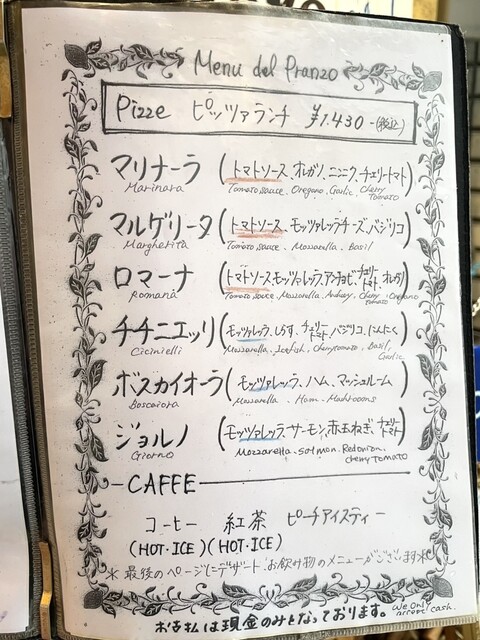 Menu del Pranzo
Pizze ピッツァランチ ¥1.430-(税込)
マリナーラ (トマトソース、オレガノ、ニンニク、チェリートマト)
Marinara Tomato sauce、Oregano、Garlic、Cherry Tomato
マルゲリータ (トマトソース、モッツァレッラチーズ、バジリコ)
Margherita Tomato sauce、Mozzarella、Basil
ロマーナ (トマトソース、モッツァレッラ、アンチョビ、チェリートマト、オレガノ)
Romana Tomato sauce、Mozzarella、Cherry Tomato、Oregano
チチニエッリ (モッツァレッラ、しらす、チェリートマト、バジリコ、にんにく)
Cicinielli Mozzarella、Cherrytomato、Basil、Garlic
ボスカイオーラ (モッツァレッラ、ハム、マッシュルーム)
Boscaiora Mozzarella、Ham、Mashrooms
ジョルノ (モッツァレッラ、サーモン、赤玉ねぎ、チェリートマト)
Giorno Mozzarella、salmon、Redonion、cherry Tomato
CAFFE
コーヒー 紅茶 ピーチアイスティー
(HOT・ICE)(HOT・ICE)
※最後のページにデザート・お飲み物のメニューがございます※
お支払は現金のみとなっております。 We only accept cash.